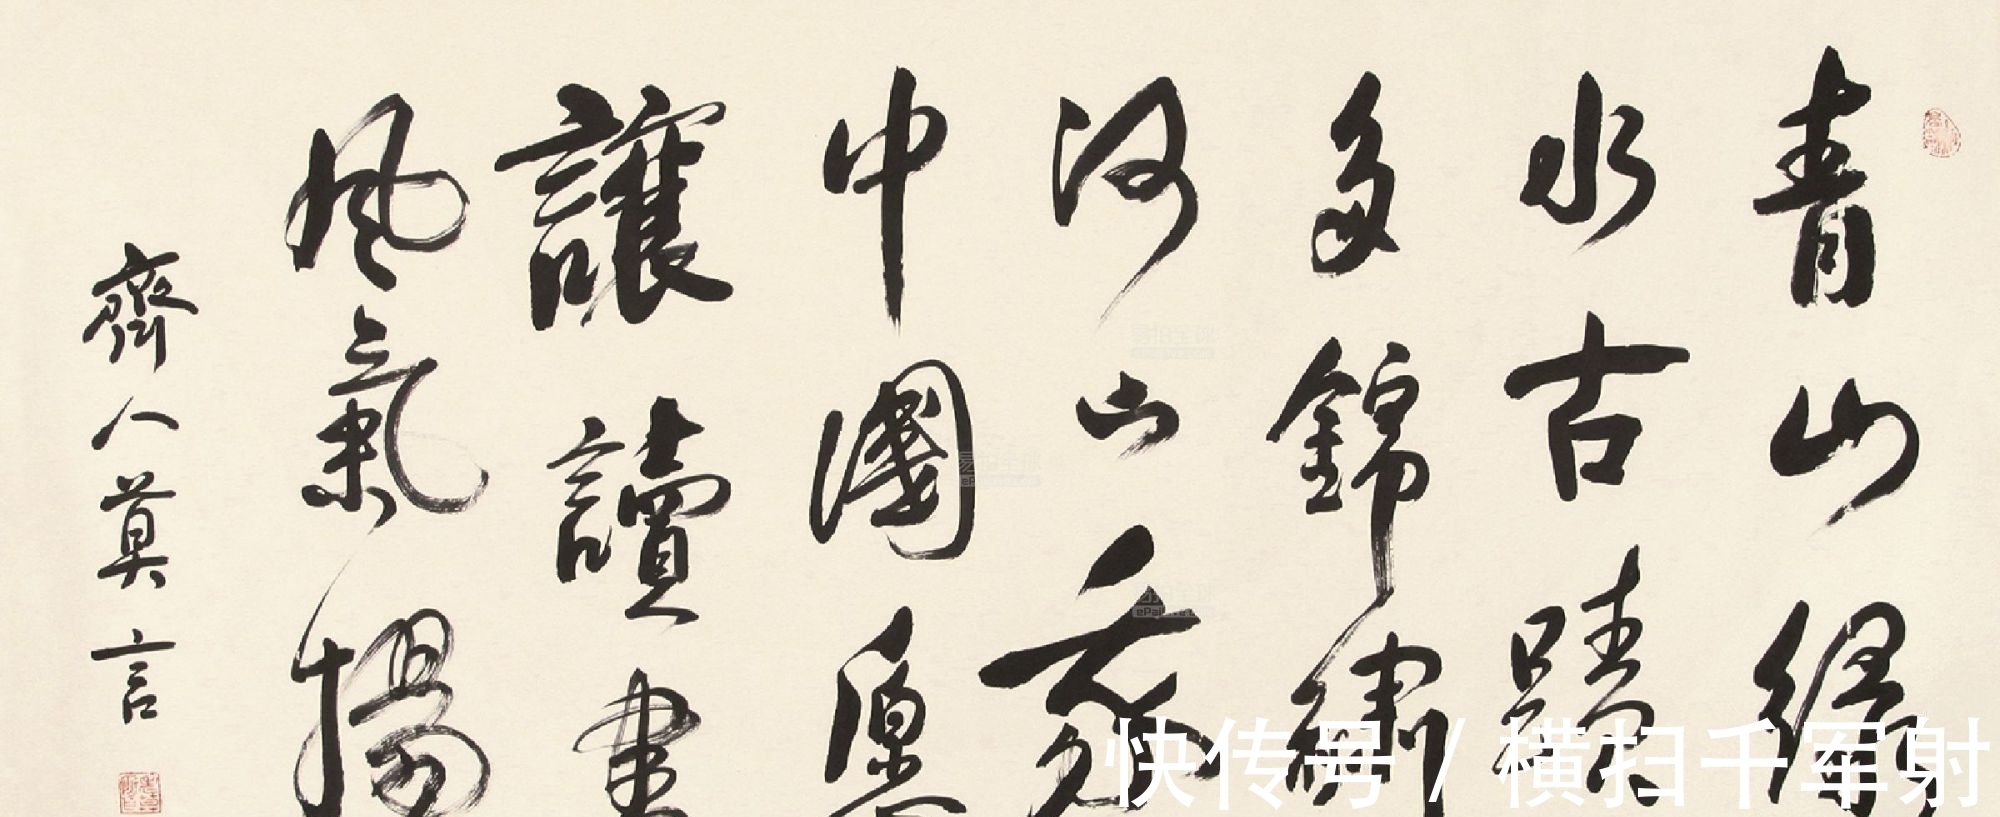 青山綠
水古蹟
多錦繡
河山
中國愿
讓讀書
風氣揚
齊人莫言
快传号 / 横扫千军射